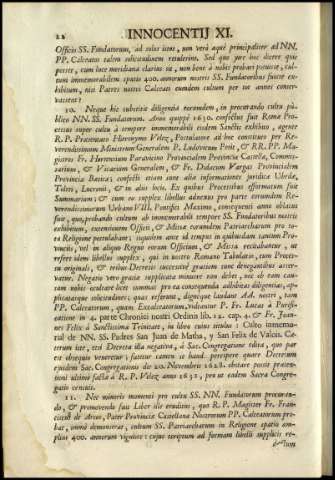 22
INNOCENTIJ XI.
Officij SS. Fundatorum, ad solos istos, non verò æquè principaliter ad NN.
PP. Calceatos talem celebritudinem retulerim. Sed quo jure hoc dicere quis
potest, cum luce meridiana clarius sit, non bene à nobis probari potuisse, cul-
tum immemorabilem spatij 400. annorum nostris SS. Fundatoribus fuisse ex-
hibitum, nisi Patres nostri Calceati eumdem cultum per tot annos conser-
vassent?
10. Neque hic substitit diligentia eorumdem, in procurando cultu pú-
blico NN. SS. Fundatorum. Anno quippè 1630. confectus fuit Romæ Pro-
cessus super cultu à tempore immemorabili eisdem Sanctis exhibito, agente
R. P. Præsentato Hieronymo Velez, Postulatore ad hoc constituto per Re-
verendissimum Ministrum Generalem P. Ludovicum Petit, & RR. PP. Ma-
gistros Fr. Hortensium Paravicino Provincialem Provinciæ Castellæ, Commis-
sarium, & Vicarium Generalem, & Fr. Didacum Vargas Provincialem
Provinciæ Bæticæ; confecti etiam sunt alij informationes juridicæ Ubedæ,
Toleti, Lucronij, & in alijs locis. Ex quibus Processibus efformatum fuit
Summarium; & cum eo supplex libellus adversus pro parte eorumdem Re-
verendissimorum Urbano VIII. Pontifici Maximo, concipiens annis ablatus
fuit, quo, probando cultum ab immemorabili tempore SS. Fundatoribus nostris
exhibitum, extensionem Officij, & Missæ eorumdem Patriarcharum pro to-
ta Religione postulabant; siquidem ante id tempus in quibusdam tantùm Pro-
vincijs, vel in aliquo Regno eorum Officium, & Missa recitabantur, ut
refert idem libellus supplex, qui in nostro Romano Tabulario, cum Proces-
su originali, & retuo Decretis successivè gratiam tunc denegantibus asser-
vatur. Negatio verò gratiæ supplicatæ minuere non debet, nec ob eam cau-
tam nobis occultare licet summas pro ea consequenda adhibitas diligentias, ap-
plicatasque sollicitudines; quas referunt, dignisque laudant AA. nostri, tam
PP. Calceatorum, quam Excalceatorum, videantur P. Fr. Lucas à Purifi-
catione in 4. parte Chronici nostri Ordinis lib. 12. cap. 4. & Fr. Joan-
nes Felix à Sanctissima Trinitate, in libro cujus titulus: Culto immemo-
rial de NN. SS. Padres San Juan de Matha, y San Felix de Valois. Cæ-
terum ista, ceù Decreta illa negativa, à Sac. Congregatione edita, quo par
est obsequio veneretur; fateor tamen se haud percipere quare Decretum
ejusdem Sac. Congregationis de 20. Novembris 1628. obstare possit præsen-
tioni ultimò factæ à R. P. Velez anno 1632, pro ut eadem Sacra Congre-
gatio censuit.
11. Nec minoris momenti pro cultu SS. NN. Fundatorum procuran-
do, & promovendo fuit Liber ille eruditus, quo R. P. Magister Fr. Fran-
ciscus de Arcos, Pater Provinciæ Castellanæ Nostrorum PP. Calceatorum pro-
bat, immò demonstrat, cultum SS. Patriarcharum in Religione spatio am-
plius 400. annorum viguisse: cujus scriptum ad formam libelli supplicis re-